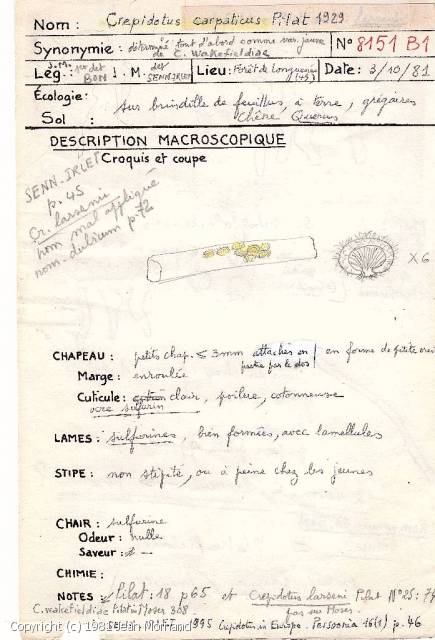 Nom : Crepidotus carpaticus Pilat 1929
Synonymie: déterminé tout d'abord comme var. jaune
de C. Wakefieldiae
N° 8151 B1
Lég.: J.M. 1er det BON J. M. det SENN-IRLET
Lieu: Forêt de
Date: 3/10/81
Écologie:
Sur brindille de feuillus, à terre, grégaires
Sol : Chêne Quercus
DESCRIPTION MACROSCOPIQUE
Croquis et coupe
SENN-IRLET
p. 45
Cr. larseni
nom mal appliqué
nom-dubium p. 72
X6
CHAPEAU : petits chap. ≤ 3mm attachés en partie par le dos en forme de petite
Marge : enroulée
Cuticule : clair, poilue, cotonneuse
ocre sulfurin
LAMES : sulfurines, bien formées, avec lamellules
STIPE : non stipité, ou à peine chez les jeunes
CHAIR : sulfurine
Odeur : nulle
Saveur :
CHIMIE :
NOTES : Pilat : 18 p 65 et Crepidotus larseni Pilat N°25 :
C. wakefieldiae Moser 308 pas sur Moser
SENN-IRLET 1995 Crepidotus in Europe. Persoonia 16(1) p. 46
Copyright (c) Jean Mornand